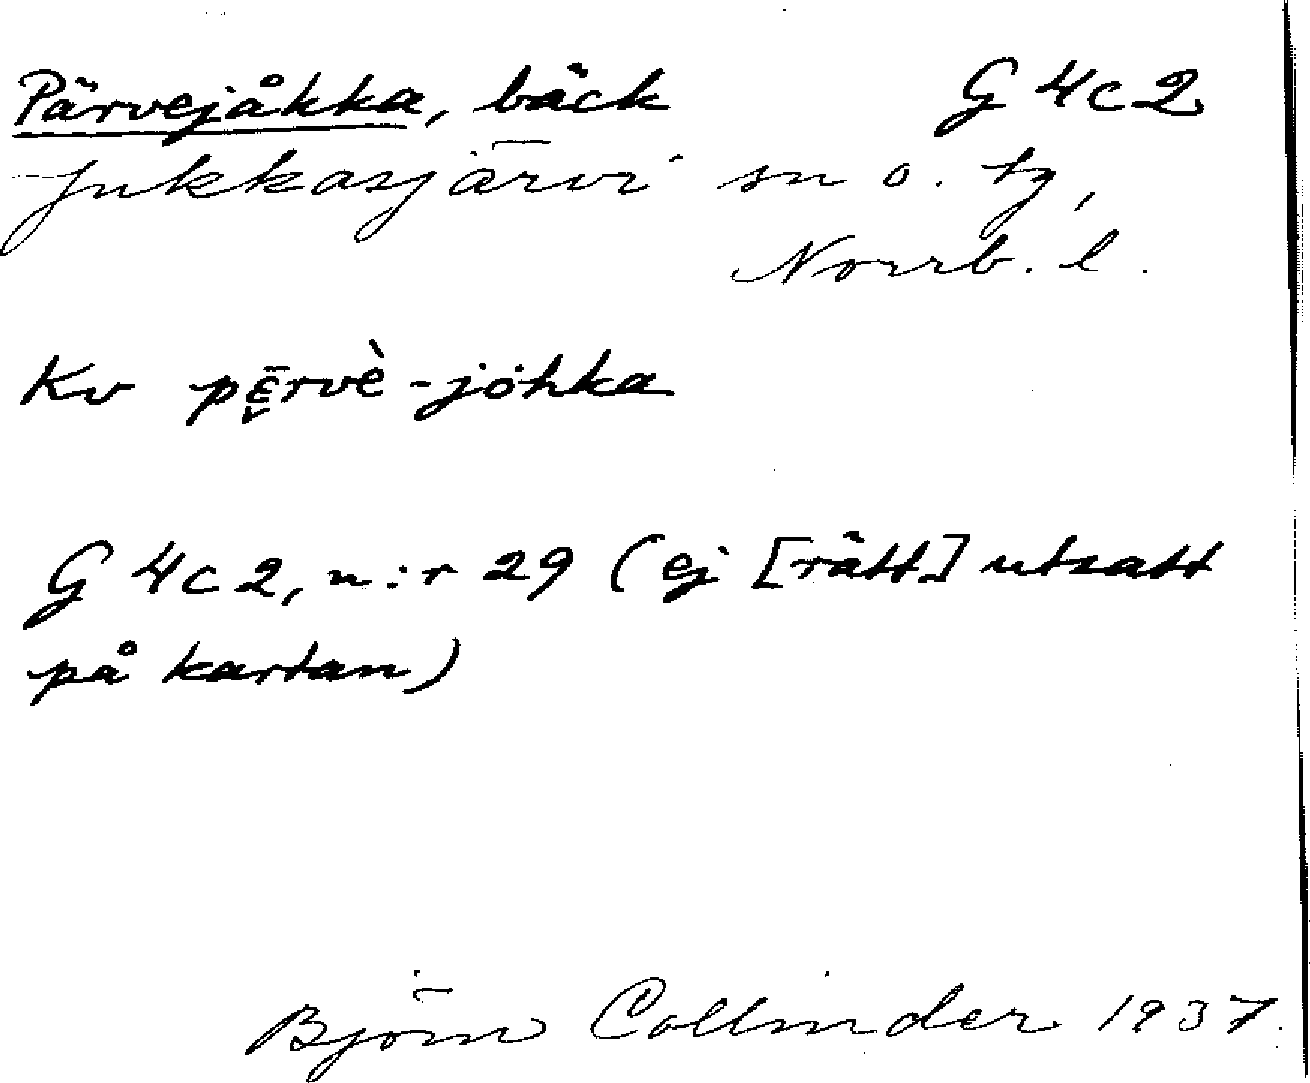 Pärvejåkka, bäck G 4c2
Jukkasjärvi sn o. tg,
Norrb. l.
Kv pε̬̄rvè-jȯhka
G 4c2, n:r 29 (ej [rätt] utsatt
på kartan)
Björn Collinder 1937.